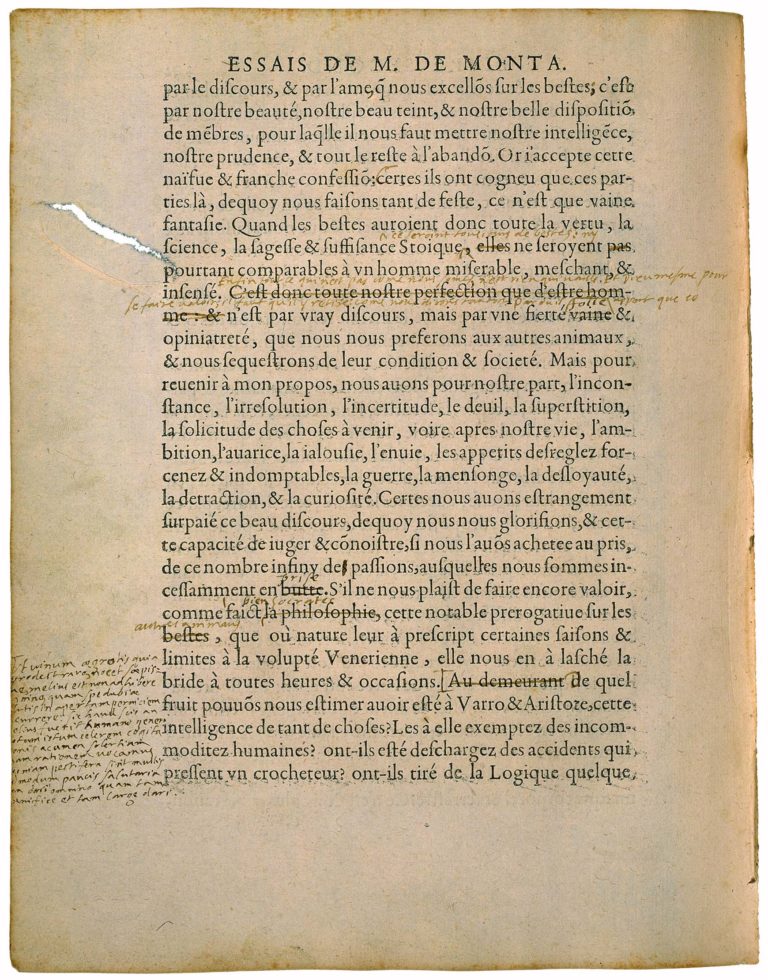 ESSAIS DE M. DE MONTA.
par le diſcours, & par l'ame, q̃ nous excellõs ſur les beſtes; c'eſt
par noſtre beauté, noſtre beau teint, & noſtre belle diſpoſitiõ
de mẽbres, pour laq̃lle il nous faut mettre noſtre intelligẽce,
noſtre prudence, & tout le reſte à l'abandõ. Or i'accepte cette
naïfue & franche confeſſiõ: Certes ils ont cogneu que ces par-
ties là, dequoy nous faiſons tant de feſte, ce n'eſt que vaine
fantaſie. Quand les beſtes auroient donc toute la vertu, la
ce seroint tousjours des bestes: ny
ſcience, la ſageſſe & ſuffiſance Stoique, elles ne ſeroyent pas
pourtant comparables à vn homme miſerable, meſchant, &
inſensé. C'eſt donc toute noſtre perfection que d'eſtre hom-
me: & n'eſt par vray diſcours, mais par vne fierté vaine &
folle
opiniatreté, que nous nous preferons aux autres animaux,
& nous ſequeſtrons de leur condition & societé. Mais pour
reuenir à mon propos, nous auons pour noſtre part, l'incon-
ſtance, l'irreſolution, l'incertitude, le deuil, la ſuperſtition,
la ſolicitude des choſes à venir, voire apres noſtre vie, l'am-
bition, l'auarice, la ialouſie, l'enuie, les appetits deſreglez for-
cenez & indomptables, la guerre, la menſonge, la deſloyauté,
la detraction, & la curioſité. Certes nous auons eſtrangement
ſurpaié ce beau diſcours, dequoy nous nous glorifions, & cet-
te capacité de iuger & cõnoiſtre, ſi nous l'auõs achetee au pris,
de ce nombre infiny de paſſions, auſquelles nous ſommes in-
prise
ceſſamment en butte. S'il ne nous plaiſt de faire encore valoir,
bien Socrates
comme faict la philoſophie, cette notable prerogatiue ſur les
autres animaux
beſtes, que où nature leur à preſcript certaines ſaiſons &
limites à la volupté Venerienne, elle nous en à laſché la
bride à toutes heures & occaſions. Au demeurant de quel
fruit pouuõs nous eſtimer auoir eſté à Varro & Ariſtote, cette
intelligence de tant de choſes? Les à elle exemptez des incom-
moditez humaines? ont-ils eſté deſchargez des accidents qui
preſſent vn crocheteur? ont-ils tiré de la Logique quelque
Ut vinum ægrotis quia
prodest raro nocet sæpis-
melius est non adhibere
omnino quam spe dubiæ
salutis in apertam perniciem
incurrere sic haud scio an
melius fuerit humano generi
motum istum celerem cogita-
tionis acumen solertiam
quam rationem vocamus
quoniam pestifera sint multis
admodum paucis salutaria
non dari omnino quam tam
munifice et tam large dari.